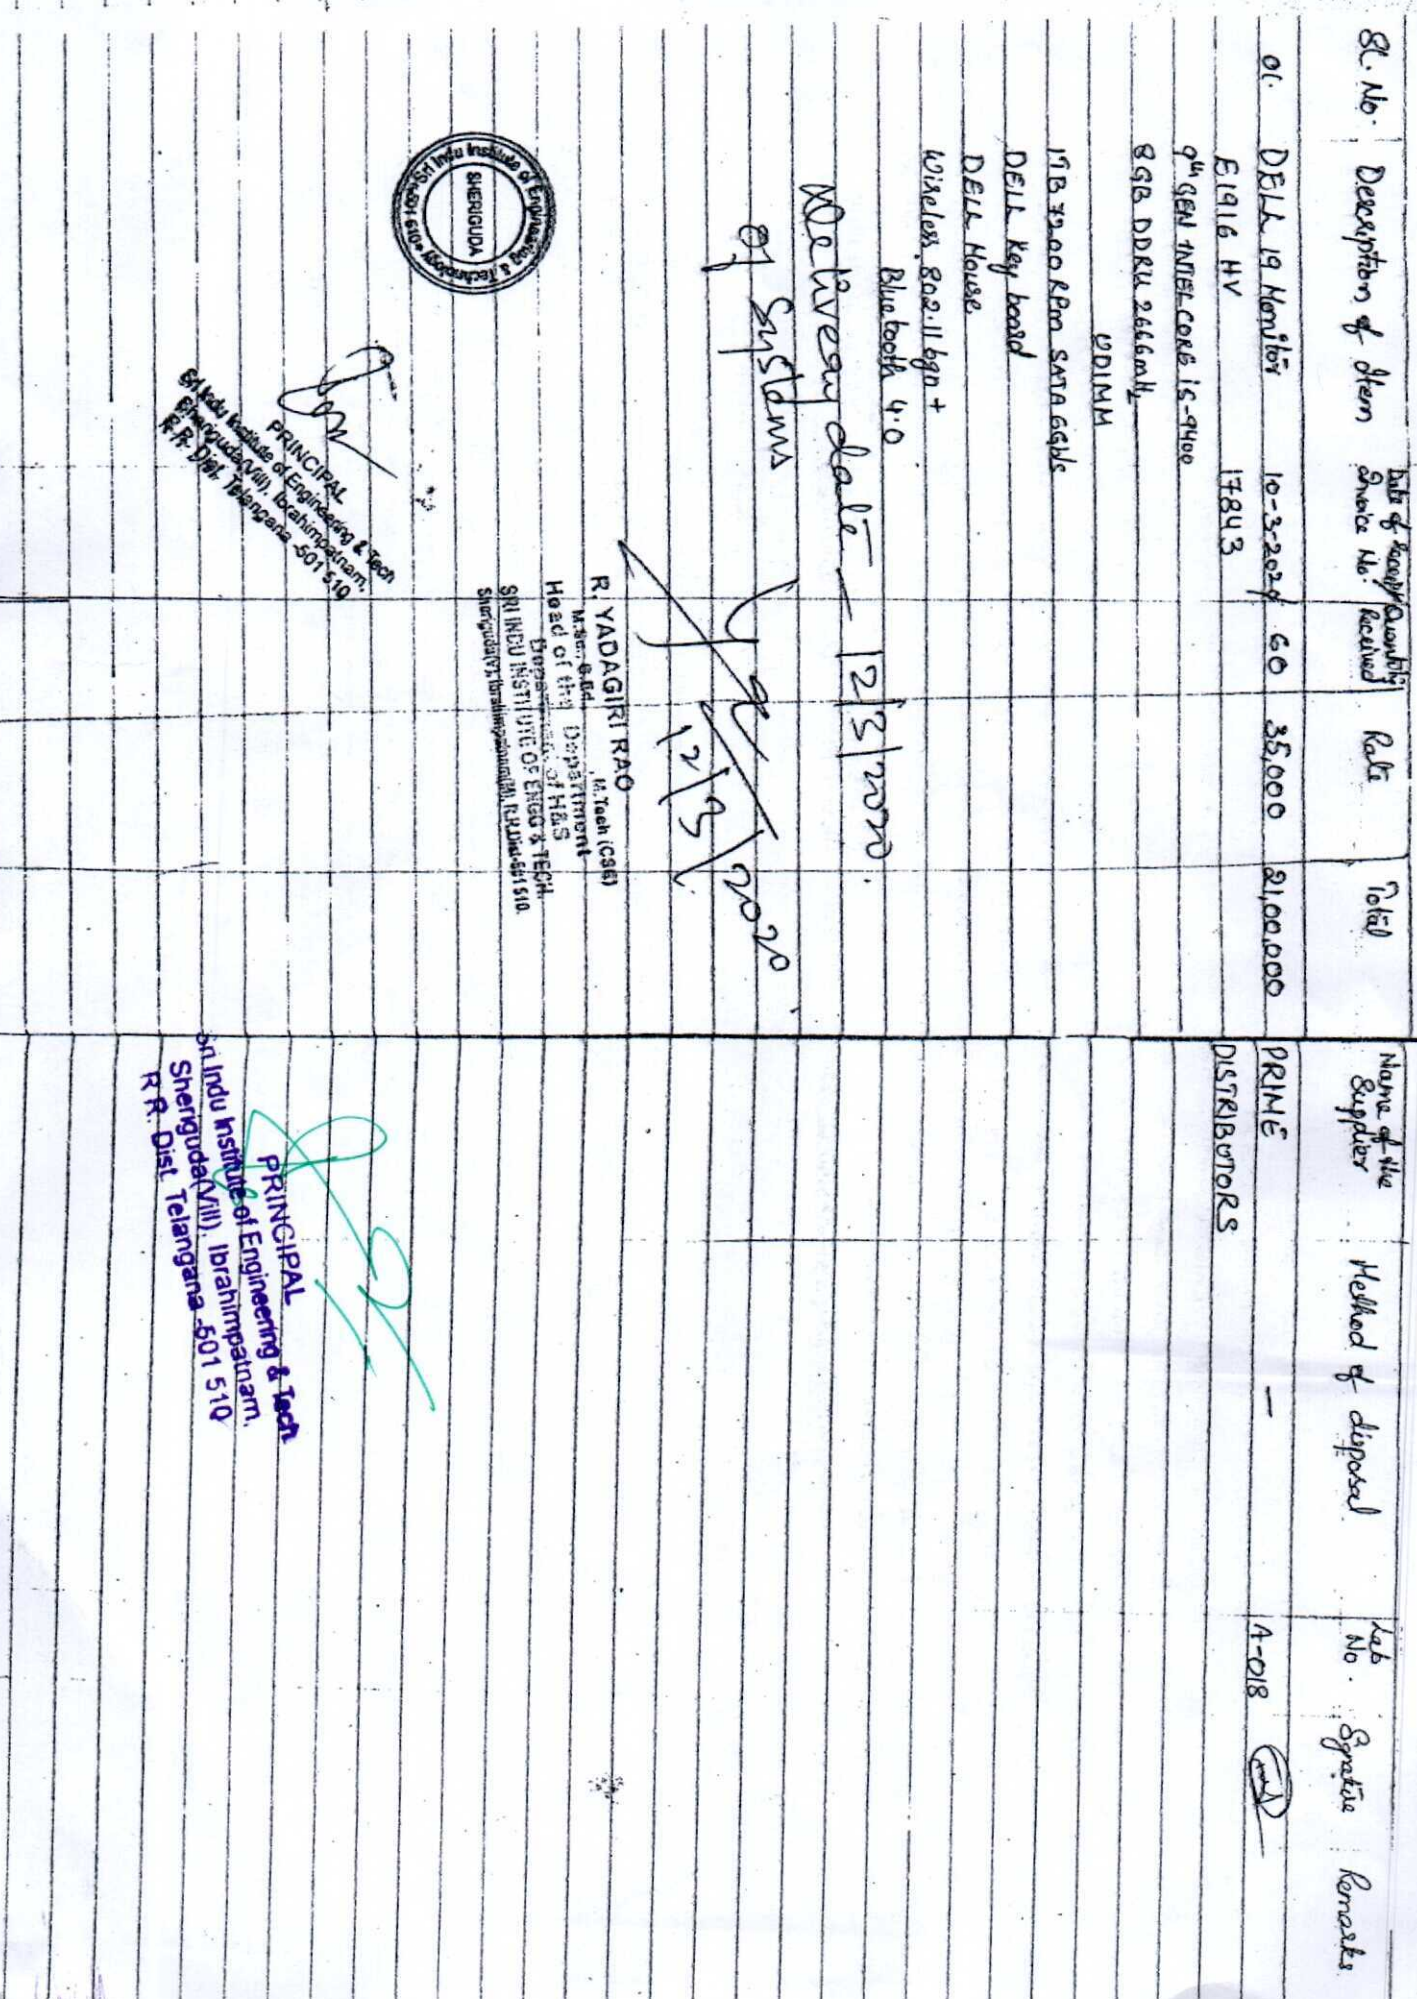 SL. No. Description of Item Date of Receipt/ Invoice No. Quantity Received Rate Total Name of the Supplier Method of disposal Lab No. Signature Remarks
01. DELL 19 Monitor 10-3-2020 60 35,000 21,00,000 PRIME — A-018
E1916 HV 17843 DISTRIBUTORS
9th GEN INTEL CORE i5-9400
8GB DDR4 2666mHz
UDIMM
1TB 7200 RPm SATA 6Gb/s
DELL Key board
DELL Mouse
Wireless 802.11 bgn +
Bluetooth 4.0
Delivery date — 12/3/2020
of Systems
12/3/2020
R. YADAGIRI RAO
M.Sc., B.Ed., M.Tech (CSE)
Head of the Department
Department of H&S
SRI INDU INSTITUTE OF ENGG & TECH.
Sheriguda(V), Ibrahimpatnam(M), R.R.Dist-501 510.
Sri Indu Institute of Engineering & Technology
SHERIGUDA
PRINCIPAL
Sri Indu Institute of Engineering & Tech
Sheriguda(Vill). Ibrahimpatnam,
R.R. Dist. Telangana -501 510
PRINCIPAL
Sri Indu Institute of Engineering & Tech
Sheriguda(Vill). Ibrahimpatnam.
R.R. Dist. Telangana -501 510